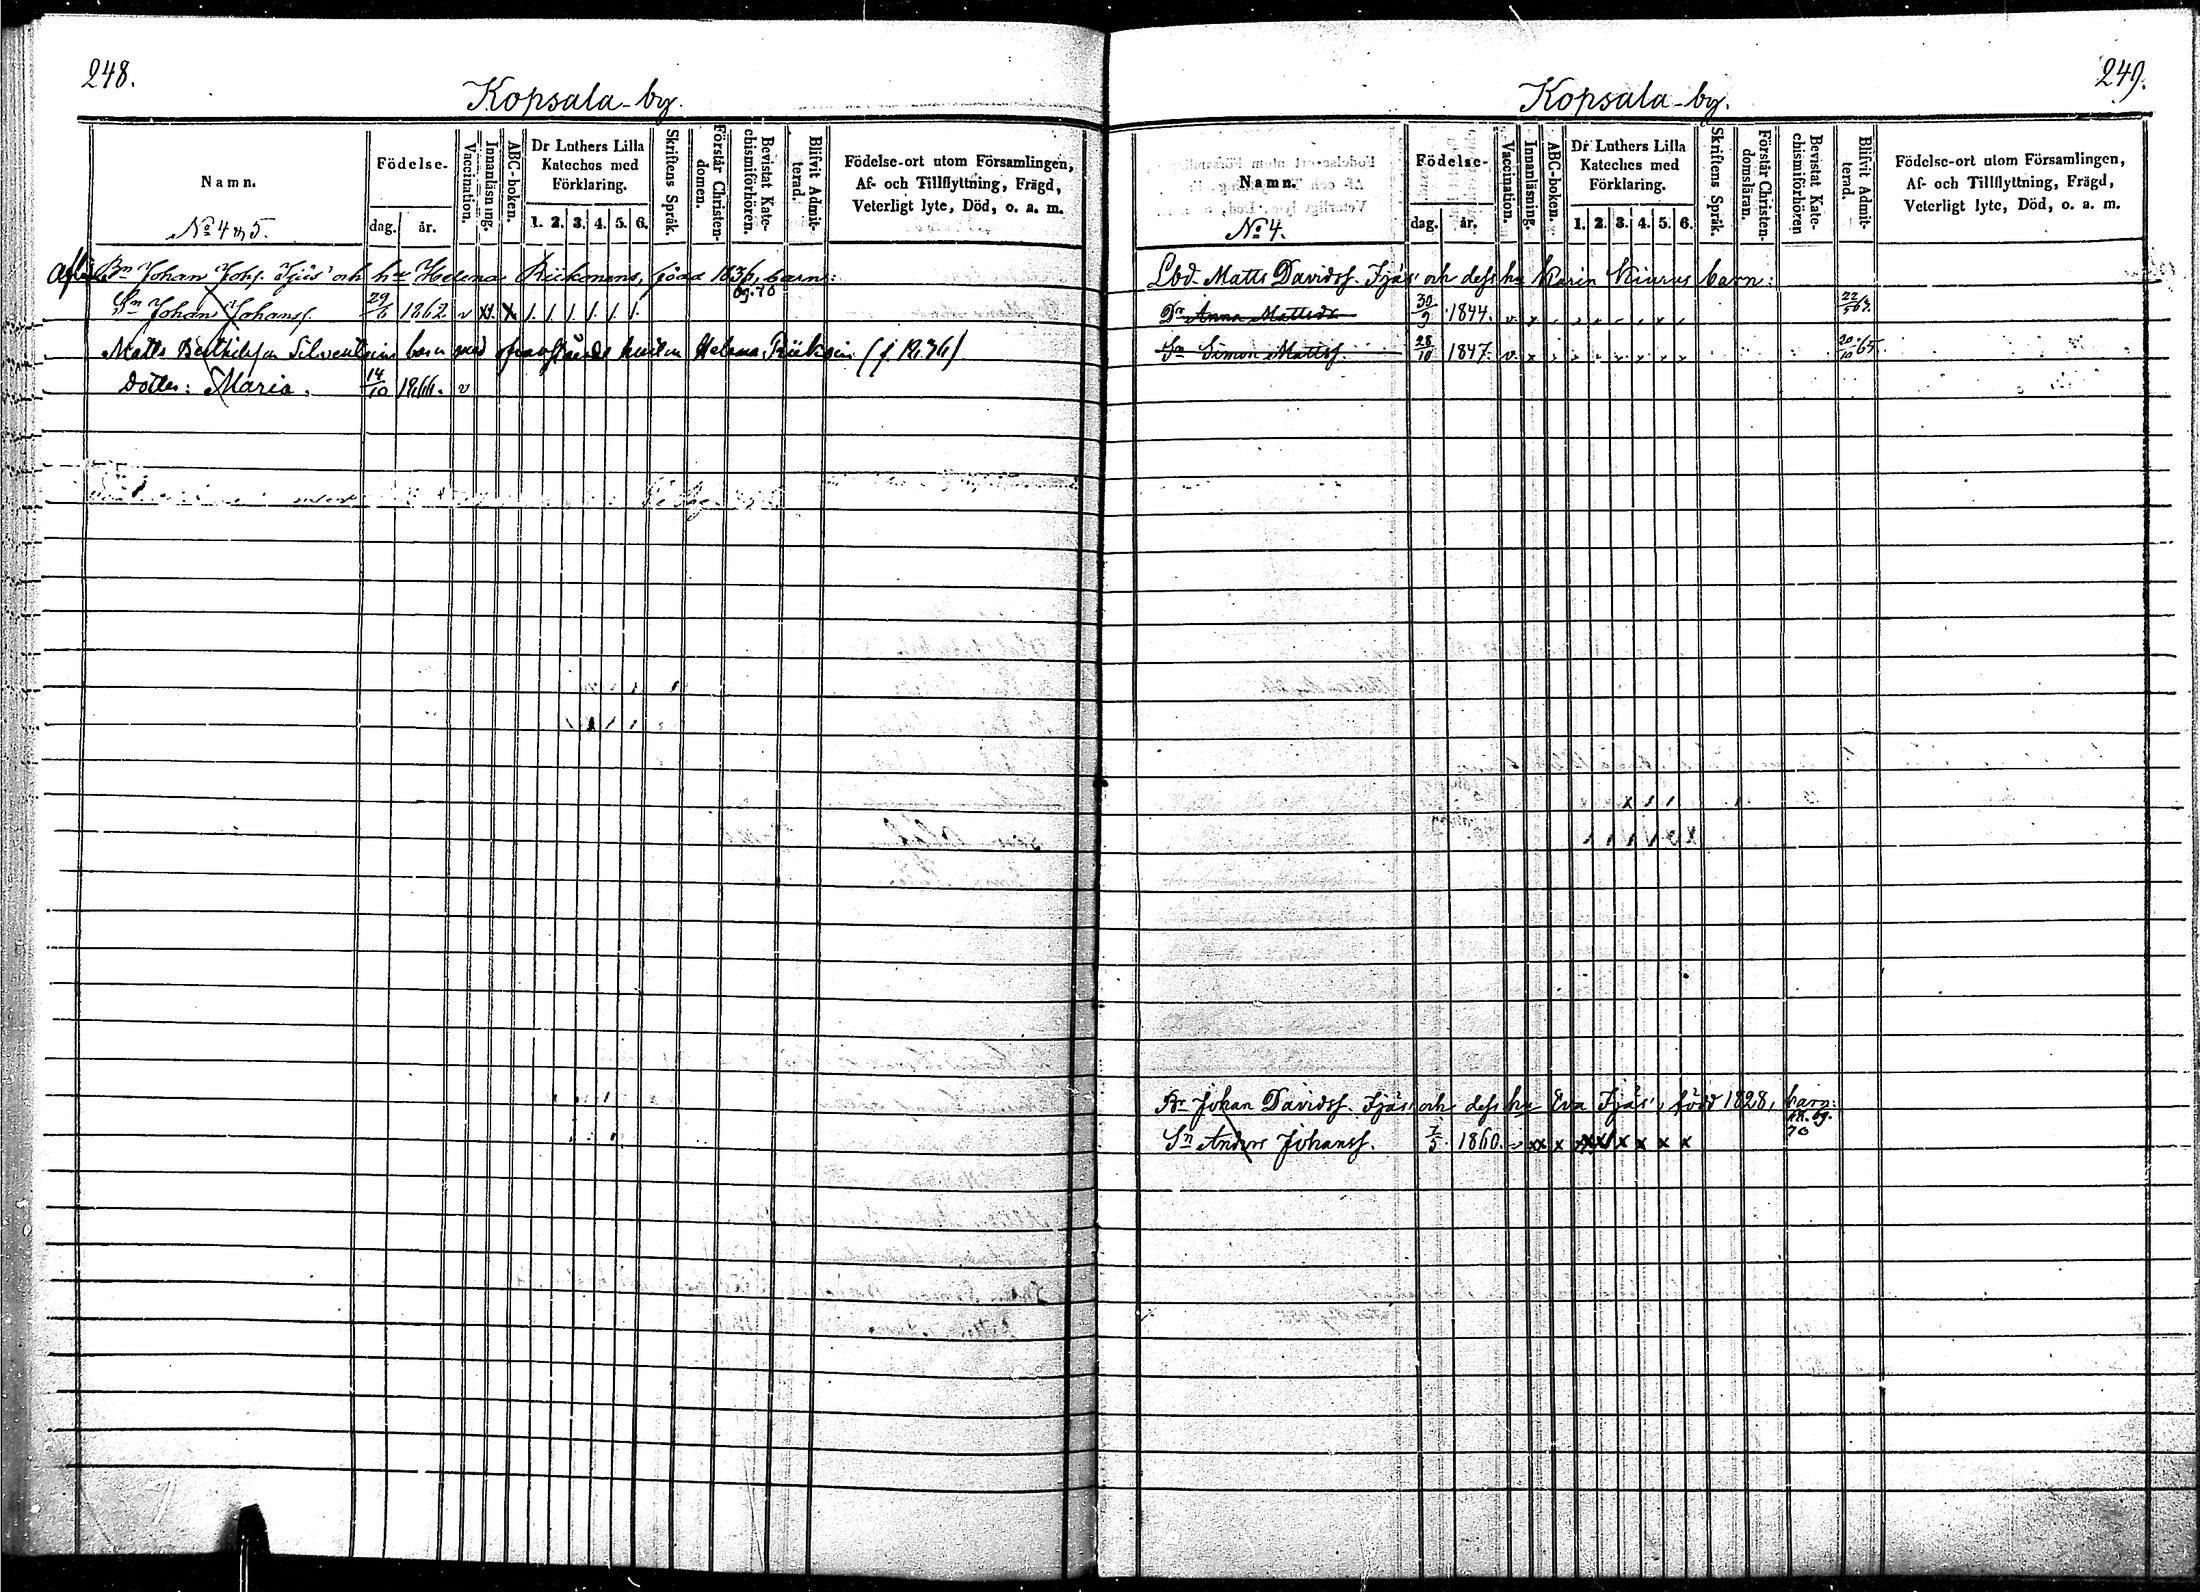 248.
Kopsala-by.
Namn.
No 4 & 5.
Födelse-
dag. år.
Vaccination.
Innanläsning.
ABC-boken.
Dr Luthers Lilla
Kateches med
Förklaring.
1. 2. 3. 4. 5. 6.
Skriftens Språk.
Förstår Christen-
domen.
Bevistat Kate-
chismiförhören.
Blifvit Admit-
terad.
Födelse-ort utom Församlingen,
Af- och Tillflyttning, Frägd,
Veterligt lyte, Död, o. a. m.
Bn Johan Johs. Fjäs' och hu Helena Riikonens, född 1836, barn:
Sn Johan Johanss. 29/6 1862. v x x / / / / / / 69.70
Matts Berthilsson Silventoins barn med ofvanstående hustru Helena Riikoin (f 1836)
Dotter: Maria. 14/10 1866. v
249.
Kopsala-by.
Namn.
No 4.
Födelse-
dag. år.
Vaccination.
Innanläsning.
ABC-boken.
Dr Luthers Lilla
Kateches med
Förklaring.
1. 2. 3. 4. 5. 6.
Skriftens Språk.
Förstår Christen-
domsläran.
Bevistat Kate-
chismiförhören
Blifvit Admit-
terad.
Födelse-ort utom Församlingen,
Af- och Tillflyttning, Frägd,
Veterligt lyte, Död, o. a. m.
Lbd. Matts Davidss. Fjäs' och dess hu Karin Kiurus barn:
Dr Anna Mattsdr 30/9 1844. v.
Sn Simon Mattss. 28/10 1847. v. 20/10 65.
Bn Johan Davidss. Fjäs' och dess hu Eva Fjäs', född 1828, barn:
Sn Anders Johanss. 7/5. 1860. v xx x x x x x x x 68. 69. 70